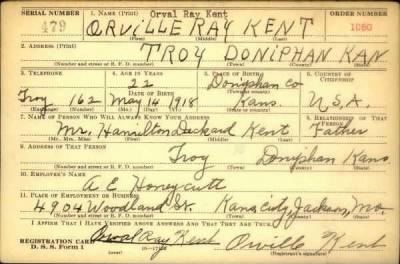 SERIAL NUMBER 1. NAME (Print) Orval Ray Kent ORDER NUMBER
479 ORVILLE RAY KENT 1060
(First) (Middle) (Last)
2. ADDRESS (Print)
TROY DONIPHAN KAN
(Number and street or R. F. D. number) (Town) (County) (State)
3. TELEPHONE 4. AGE IN YEARS 5. PLACE OF BIRTH 6. COUNTRY OF CITIZENSHIP
22 Doniphan Co
Troy 162 DATE OF BIRTH May 14 1918 Kans. U.S.A.
(Exchange) (Number) (Mo.) (Day) (Yr.) (Town or county) (State or country)
7. NAME OF PERSON WHO WILL ALWAYS KNOW YOUR ADDRESS 8. RELATIONSHIP OF THAT PERSON
Mr. Hamilton Deckard Kent Father
(Mr., Mrs., Miss) (First) (Middle) (Last)
9. ADDRESS OF THAT PERSON
Troy Doniphan Kans.
(Number and street or R. F. D. number) (Town) (County) (State)
10. EMPLOYER'S NAME
A E Honeycutt
11. PLACE OF EMPLOYMENT OR BUSINESS
4904 Woodland St. Kans City, Jackson, Mo.
(Number and street or R. F. D. number) (Town) (County) (State)
I AFFIRM THAT I HAVE VERIFIED ABOVE ANSWERS AND THAT THEY ARE TRUE.
REGISTRATION CARD Orval Ray Kent Orville Kent
D. S. S. Form 1 (Registrant's signature)